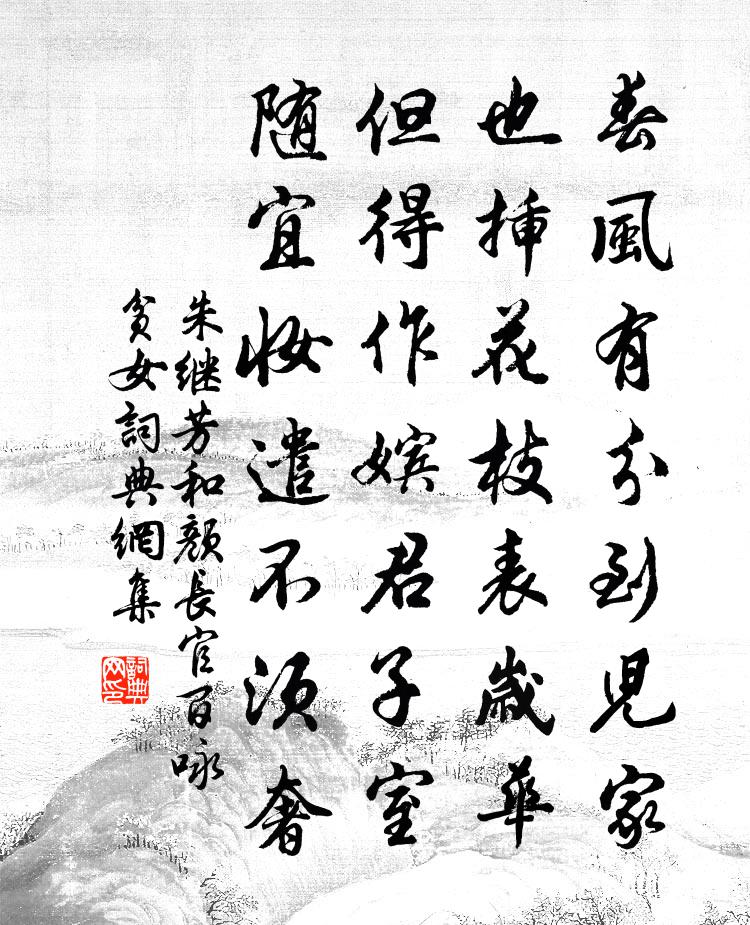 春風有分到兒家
也插花枝表歲華
但得作嬪君子室
随宜妝遣不須奢
朱继芳和顏長官百咏
貧女詞典網集
詞典网印